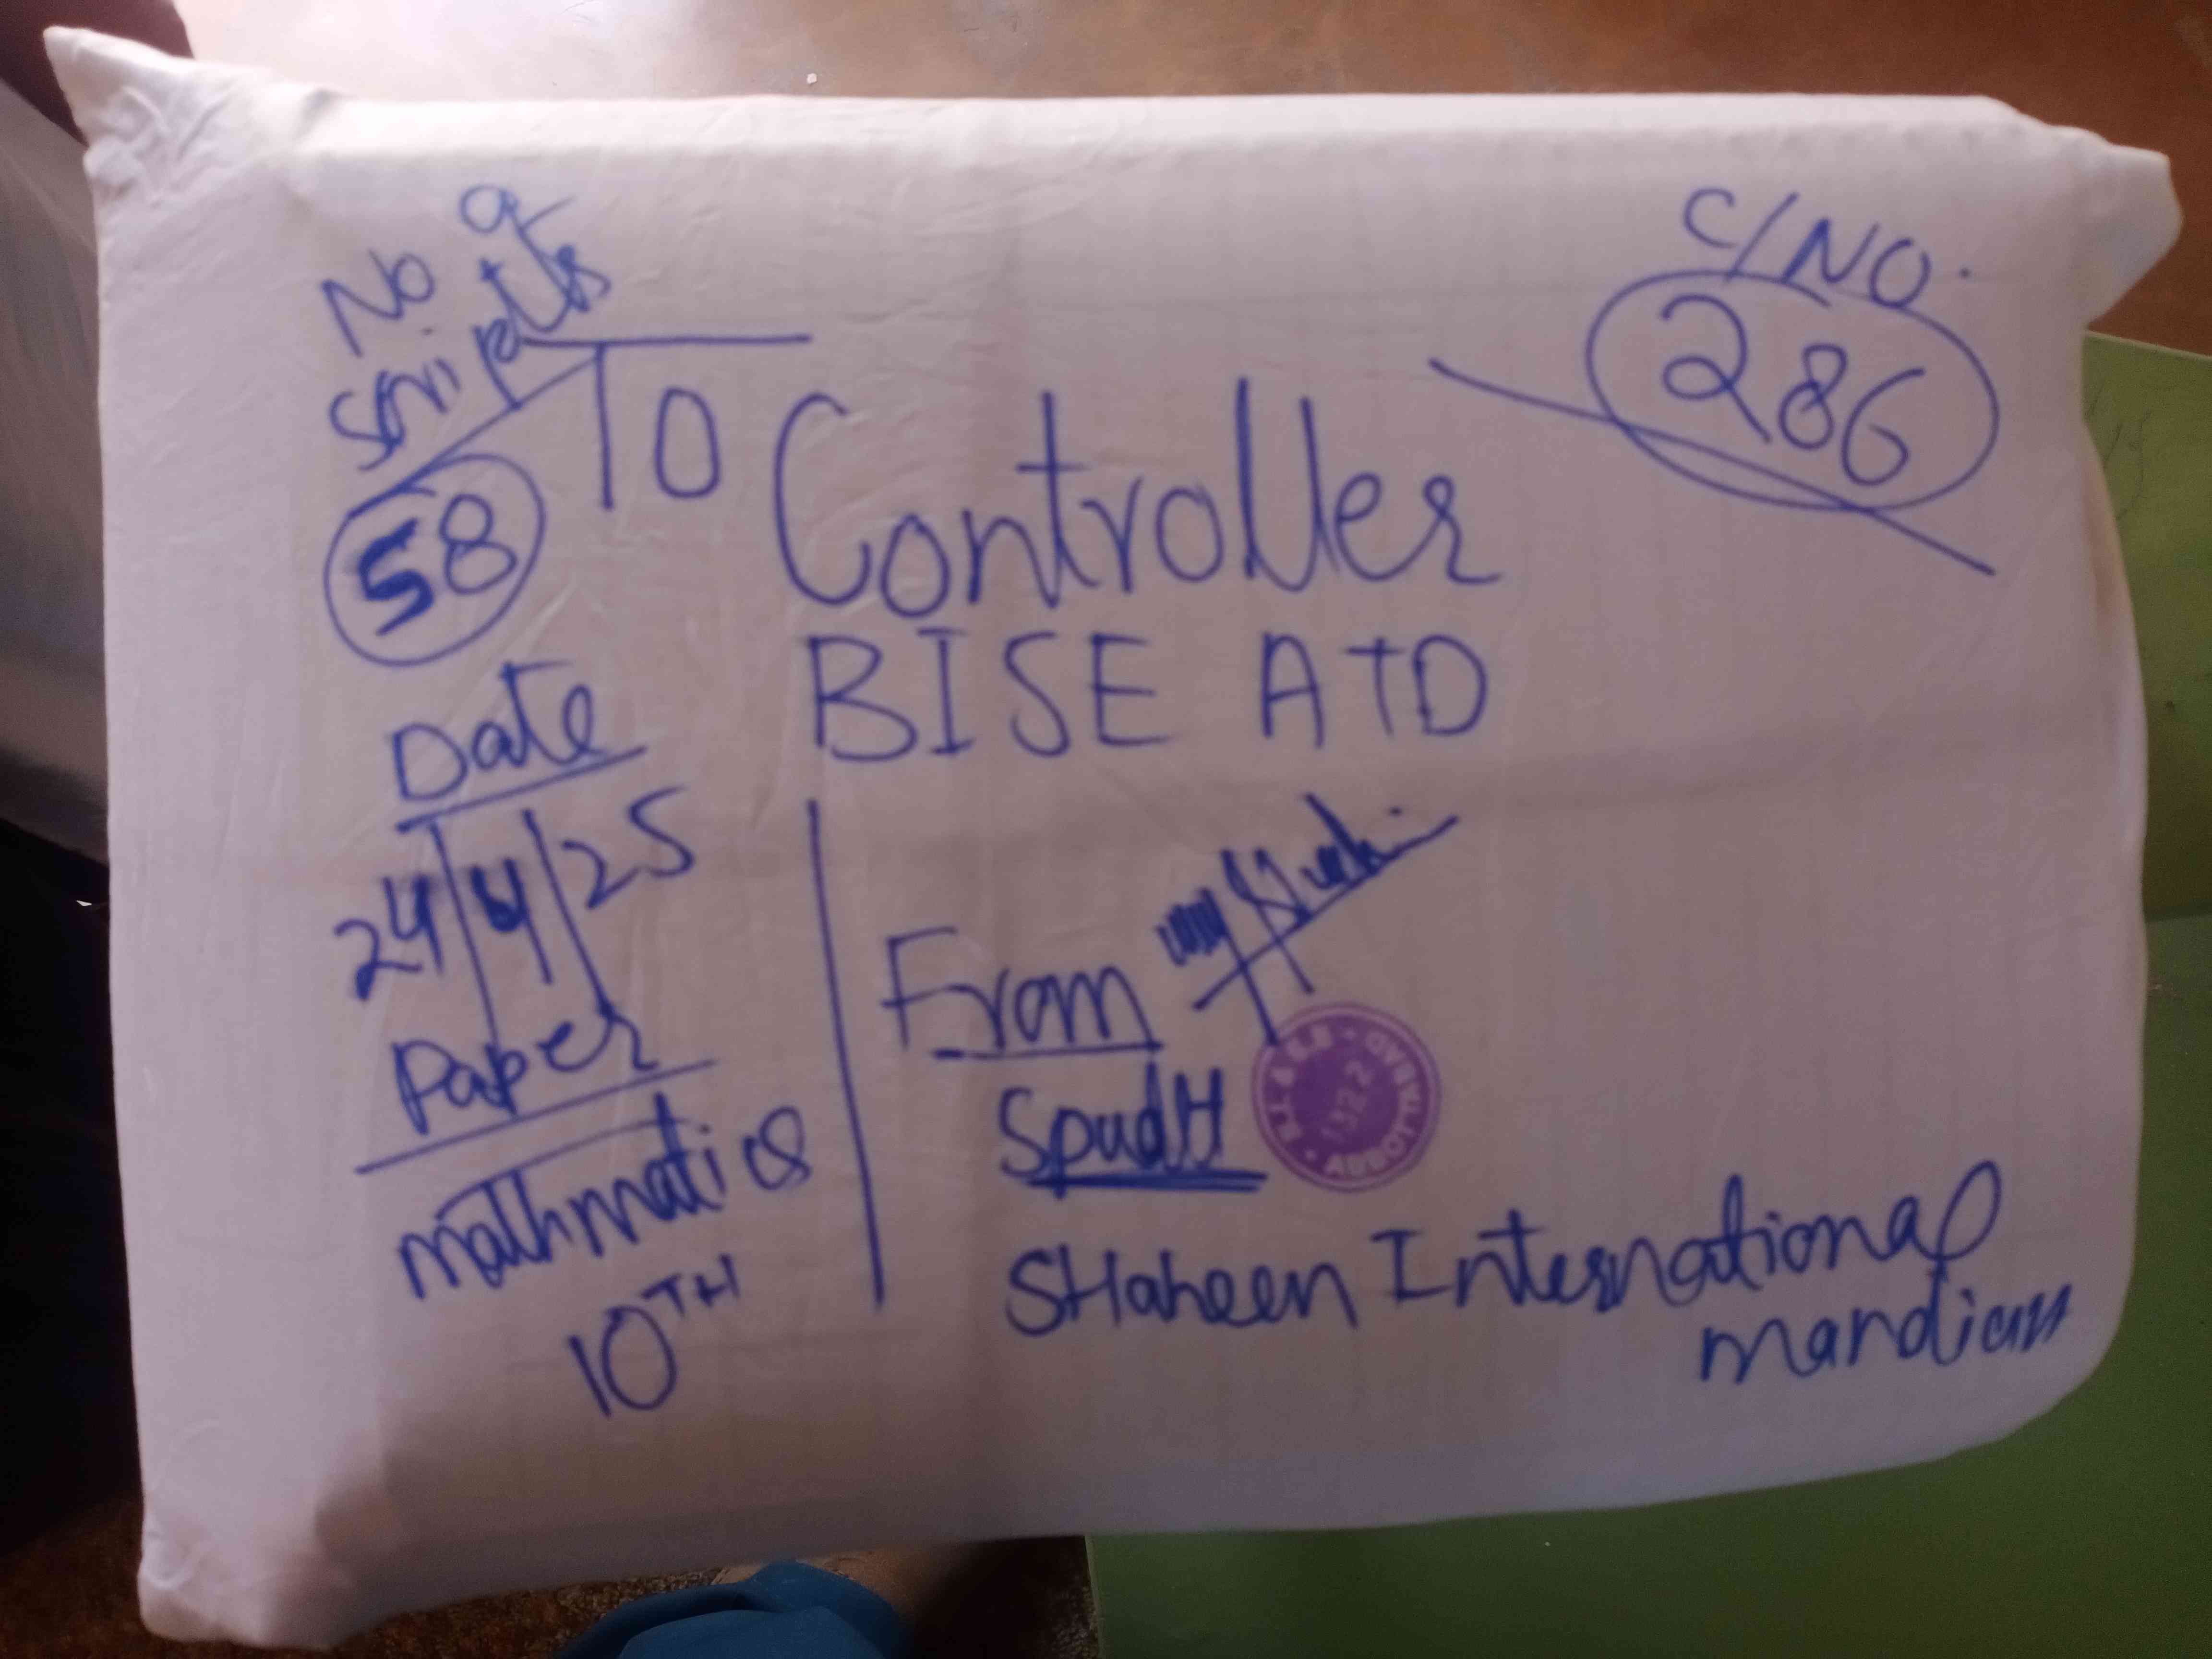 No of
Scripts
58
C/NO.
286
TO
Controller
BISE ATD
Date
24/4/25
Paper
mathmatics
10TH
From
Spudtt
SHaheen International
mandian
ABBOTTABAD
1322